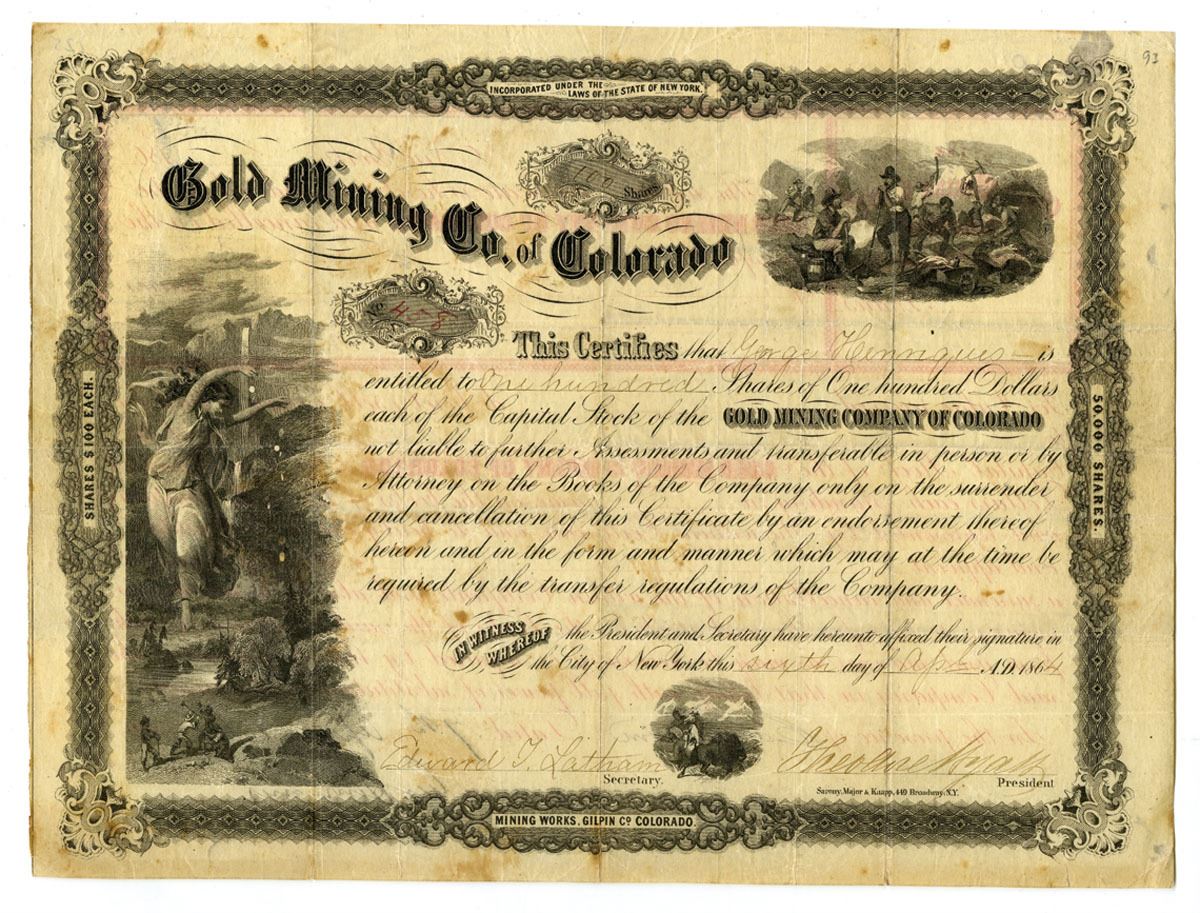 93
INCORPORATED UNDER THE
LAWS OF THE STATE OF NEW YORK.
100 Shares
Gold Mining Co. of Colorado
No. 458
This Certifies that George Henriques is
entitled to One hundred Shares of One hundred Dollars
each of the Capital Stock of the GOLD MINING COMPANY OF COLORADO
not liable to further Assessments and transferable in person or by
Attorney on the Books of the Company only on the surrender
and cancellation of this Certificate by an endorsement thereof
hereon and in the form and manner which may at the time be
required by the transfer regulations of the Company.
IN WITNESS WHEREOF the President and Secretary have hereunto affixed their signature in
the City of New York this sixth day of A.D. 1864
Edward T. Latham
Secretary.
President
Sarony, Major & Knapp, 449 Broadway, N.Y.
SHARES $100 EACH.
50,000 SHARES.
MINING WORKS, GILPIN Co COLORADO.